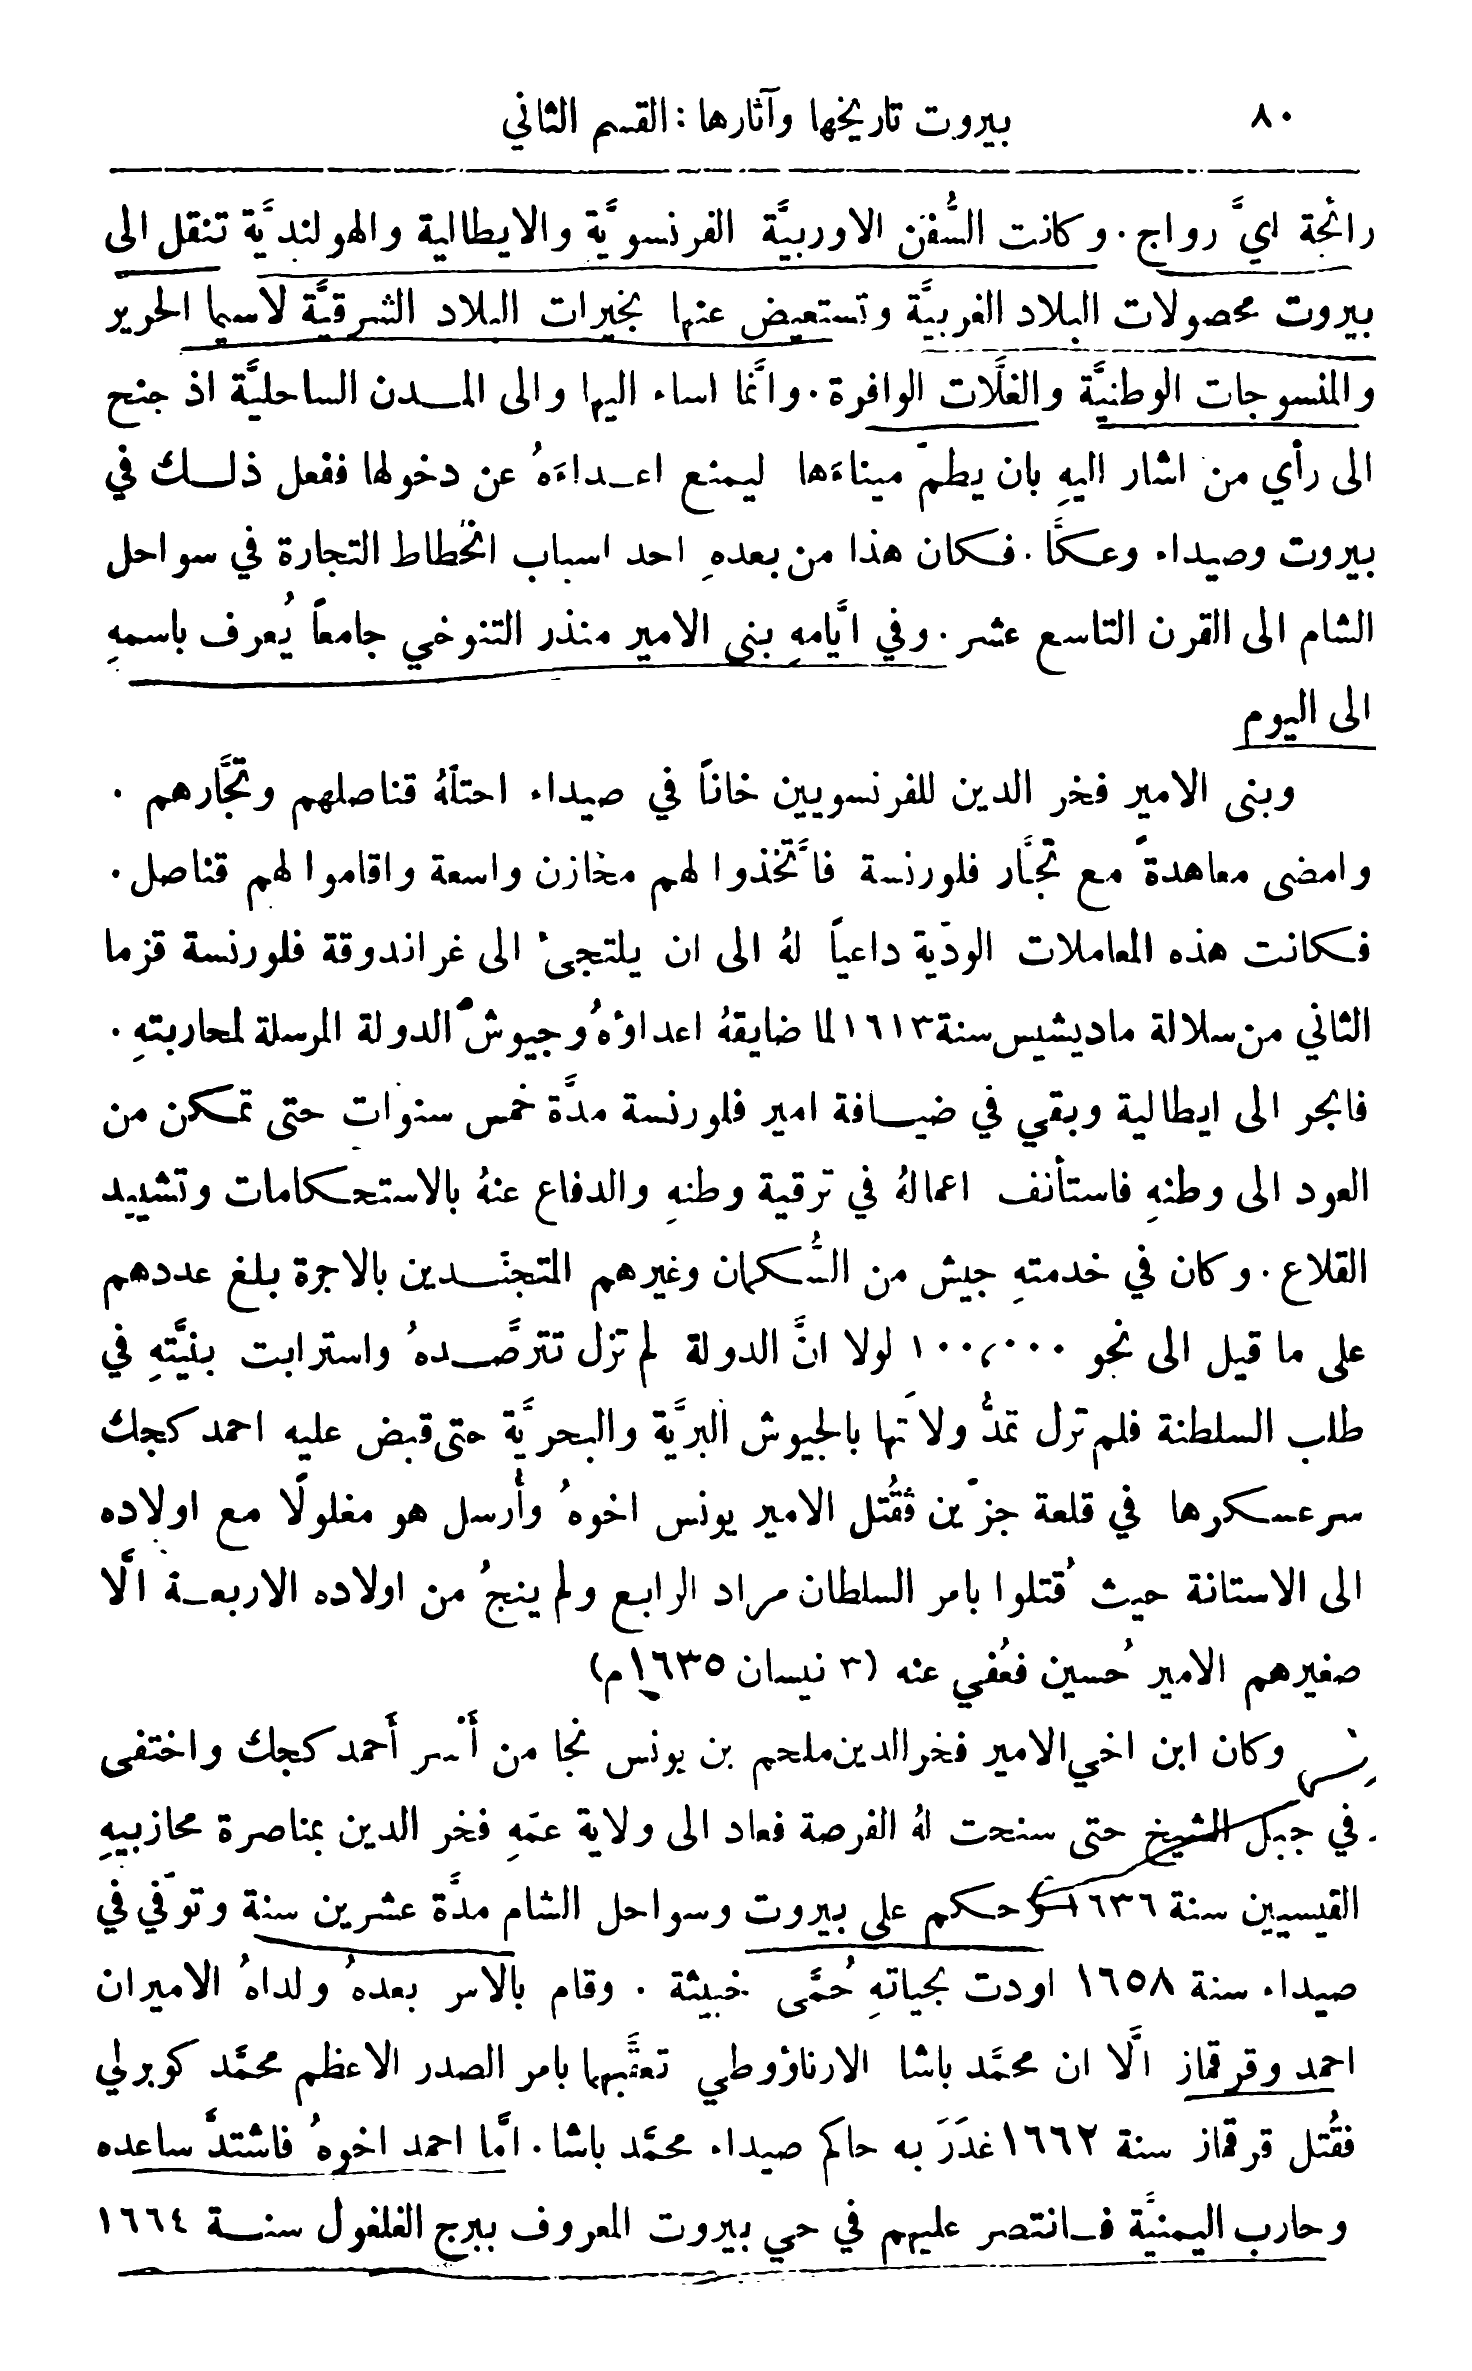 ٨٠
بيروت تاريخها وآثارها : القسم الثاني
رائجة ايَّ رواج . وكانت السُّفن الاوربيَّة الفرنسويَّة والايطالية والهولنديَّة تنقل الى
بيروت محصولات البلاد الغربيَّة وتستعيض عنها بخيرات البلاد الشرقيَّة لاسيما الحرير
والمنسوجات الوطنيَّة والغلَّات الوافرة . وانَّما اساء اليها والى المدن الساحليَّة اذ جنح
الى رأي من اشار اليهِ بان يطمّ ميناءَها ليمنع اعداءَهُ عن دخولها ففعل ذلك في
بيروت وصيداء وعكَّا . فكان هذا من بعدهِ احد اسباب انحطاط التجارة في سواحل
الشام الى القرن التاسع عشر . وفي ايَّامهِ بنى الامير منذر التنوخي جامعاً يُعرف باسمهِ
الى اليوم
وبنى الامير فخر الدين للفرنسويين خاناً في صيداء احتلّهُ قناصلهم وتجَّارهم .
وامضى معاهدةً مع تجَّار فلورنسة فاتَّخذوا لهم مخازن واسعة واقاموا لهم قناصل .
فكانت هذه المعاملات الودّية داعياً لهُ الى ان يلتجئ الى غراندوقة فلورنسة قزما
الثاني من سلالة ماديشيس سنة ١٦١٣ لما ضايقهُ اعداؤهُ وجيوش الدولة المرسلة لمحاربتهِ .
فابحر الى ايطالية وبقي في ضيافة امير فلورنسة مدَّة خمس سنوات حتى تمكن من
العود الى وطنهِ فاستأنف اعمالهُ في ترقية وطنهِ والدفاع عنهُ بالاستحكامات وتشييد
القلاع . وكان في خدمتهِ جيش من السُّكمان وغيرهم المتجنّدين بالاجرة بلغ عددهم
على ما قيل الى نحو ١٠٠،٠٠٠ لولا انَّ الدولة لم تزل تترصَّدهُ واسترابت بنيَّتهِ في
طلب السلطنة فلم تزل تمدُّ ولاتها بالجيوش البريَّة والبحريَّة حتى قبض عليه احمد كجك
سرعسكرها في قلعة جزّين فقُتل الامير يونس اخوهُ وأُرسل هو مغلولًا مع اولاده
الى الاستانة حيث قُتلوا بامر السلطان مراد الرابع ولم ينجُ من اولاده الاربعة الَّا
صغيرهم الامير حُسين فعُفي عنه (٣ نيسان ١٦٣٥م)
وكان ابن اخي الامير فخر الدين ملحم بن يونس نجا من أسر أحمد كجك واختفى
في جبل الشيخ حتى سنحت لهُ الفرصة فعاد الى ولاية عمّهِ فخر الدين بمناصرة محازبيهِ
القيسيين سنة ١٦٣٦ وحكم على بيروت وسواحل الشام مدَّة عشرين سنة وتوّفي في
صيداء سنة ١٦٥٨ اودت بحياتهِ حُمَّى خبيثة . وقام بالامر بعدهُ ولداهُ الاميران
احمد وقرقماز الَّا ان محمَّد باشا الارناؤوطي تعقَّبهما بامر الصدر الاعظم محمَّد كوبرلي
فقُتل قرقماز سنة ١٦٦٢ غدَرَ به حاكم صيداء محمَّد باشا . امَّا احمد اخوهُ فاشتدَّ ساعده
وحارب اليمنيَّة فانتصر عليهم في حي بيروت المعروف ببرج الغلغول سنة ١٦٦٤